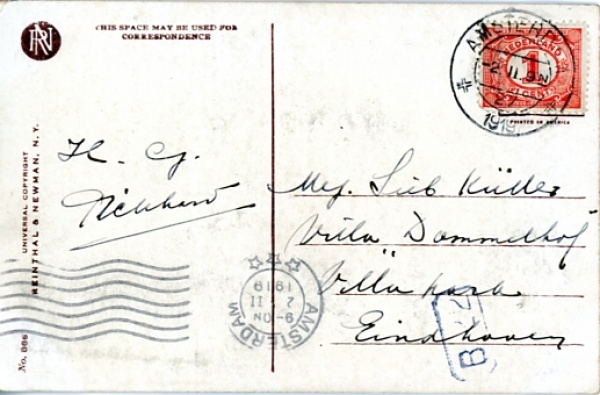 RN
THIS SPACE MAY BE USED FOR
CORRESPONDENCE
UNIVERSAL COPYRIGHT
REINTHAL & NEWMAN, N.Y.
No. 866
H. G.
AMSTERDAM
1919
NEDERLAND
1
CENT
PRINTED IN AMERICA
Mej. Lieb Küller
Villa Dommelhof
Villa park
Eindhoven
AMSTERDAM
9- ON
2 II
1919
B 2